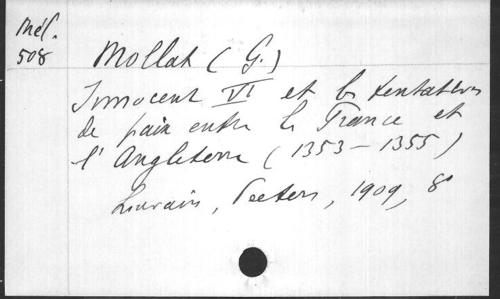 Mél.
508
Mollat (G.)
Innocent VI et les tentatives
de paix entre la France et
l'Angleterre (1353-1355)
Louvain, Peeters, 1909, 8°